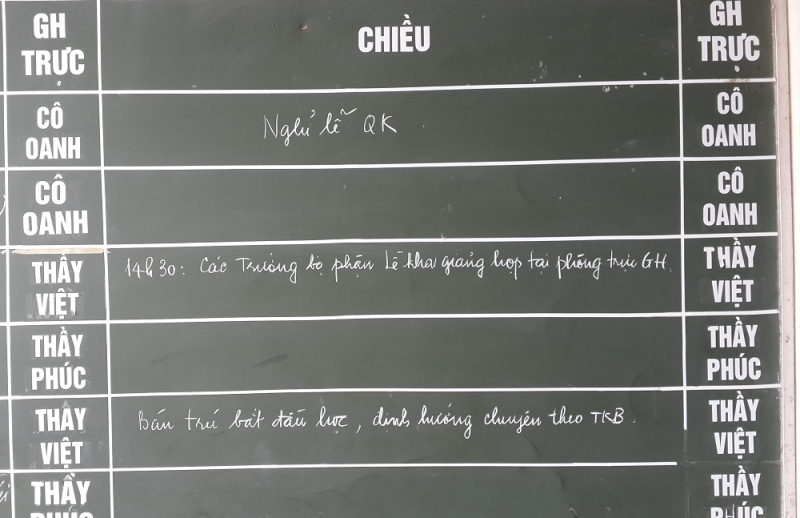 GH TRỰC CHIỀU GH TRỰC
CÔ OANH Nghỉ lễ QK CÔ OANH
CÔ OANH CÔ OANH
THẦY VIỆT 14h30: Các Trưởng bộ phận Lễ khai giảng họp tại phòng trực GH THẦY VIỆT
THẦY PHÚC THẦY PHÚC
THẦY VIỆT Bán trú bắt đầu học, định hướng chuyên theo TKB. THẦY VIỆT
THẦY PHÚC THẦY PHÚC